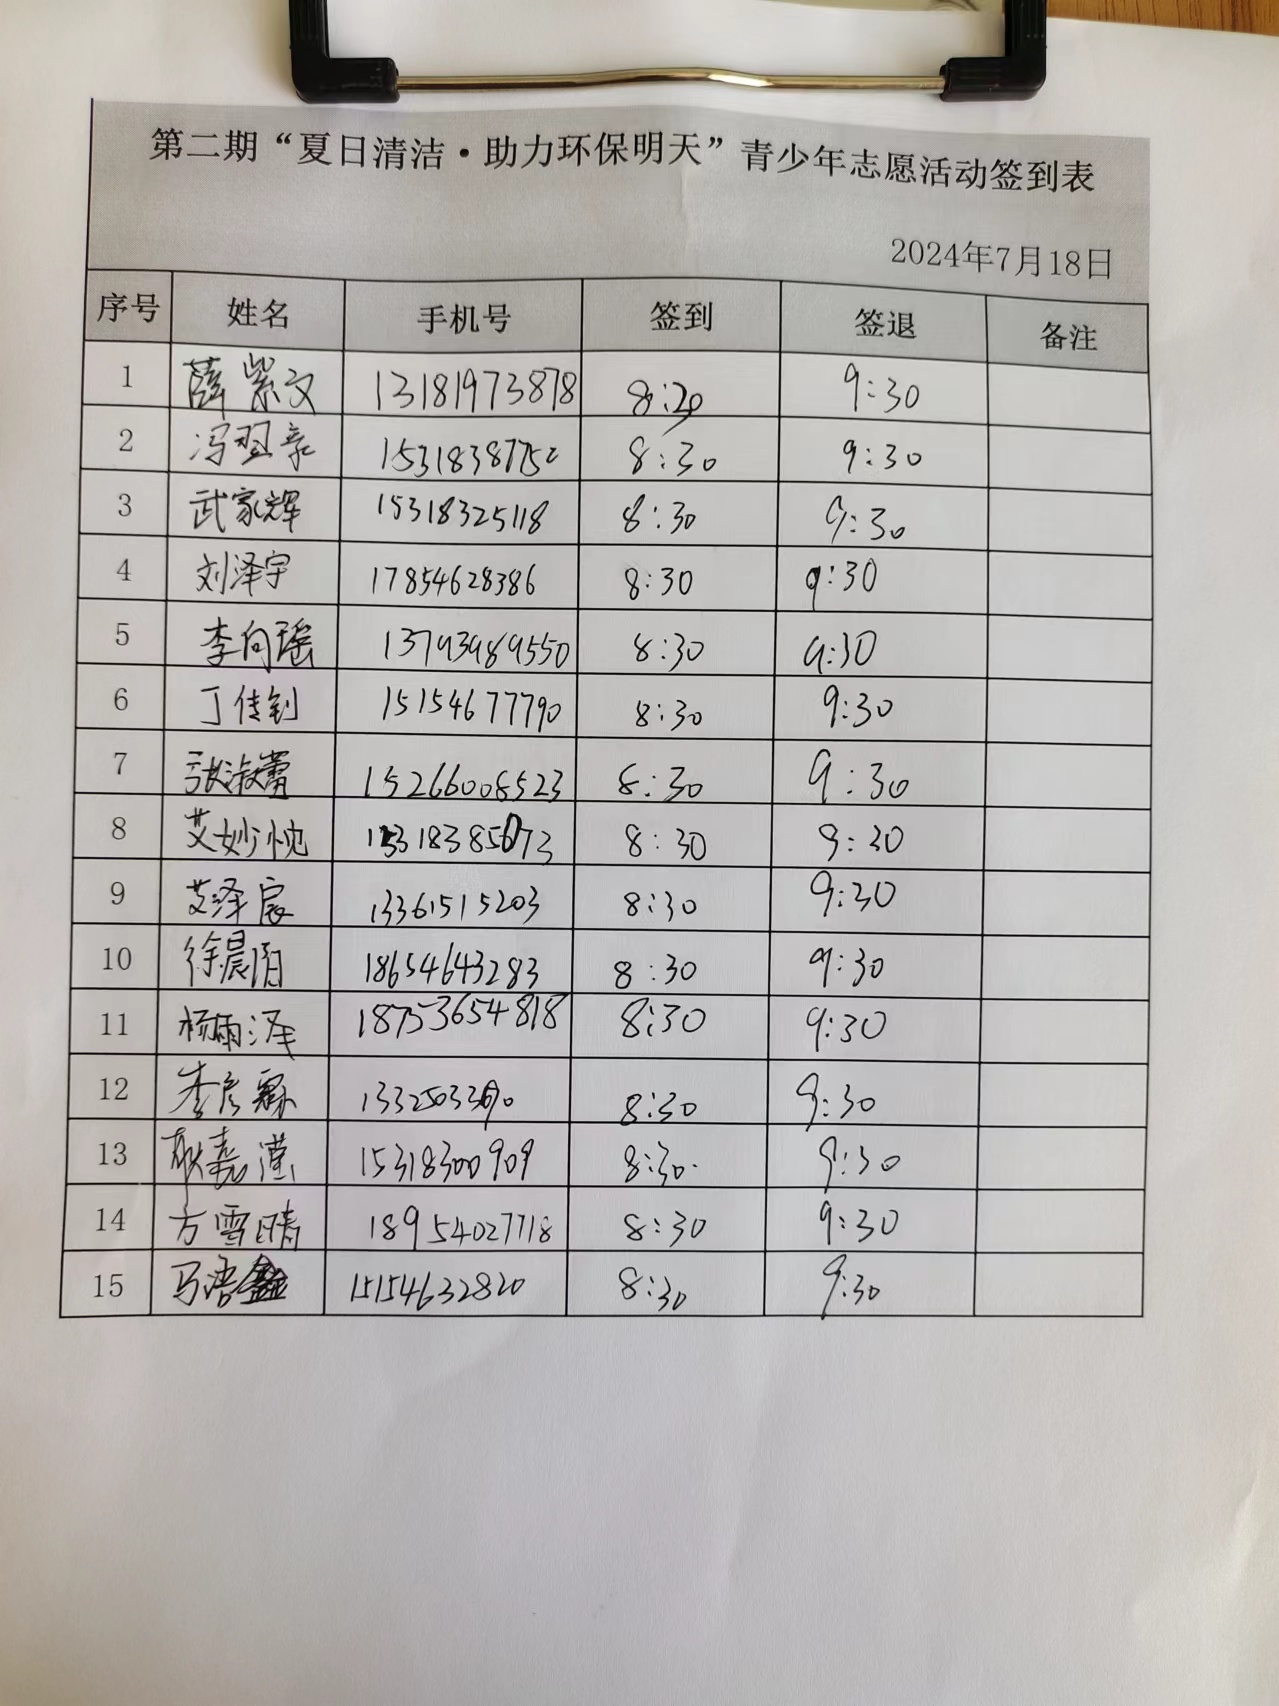 第二期“夏日清洁·助力环保明天”青少年志愿活动签到表
2024年7月18日
序号 姓名 手机号 签到 签退 备注
1 薛紫文 13181973878 8:20 9:30
2 冯翌豪 15318387752 8:30 9:30
3 武家辉 15318325118 8:30 9:30
4 刘泽宇 17854628386 8:30 9:30
5 李向瑶 13793989550 8:30 9:30
6 丁佳钊 15154677790 8:30 9:30
7 张淑蕾 15266008523 8:30 9:30
8 艾妙忱 8:30 9:30
9 艾泽宸 13361515203 8:30 9:30
10 徐晨涵 18654643283 8:30 9:30
11 杨雨泽 18753654818 8:30 9:30
12 李彦霖 8:30 9:30
13 耿嘉滢 15318300909 8:30 9:30
14 方雪晴 18954027718 8:30 9:30
15 马浩鑫 15154632820 8:30 9:30